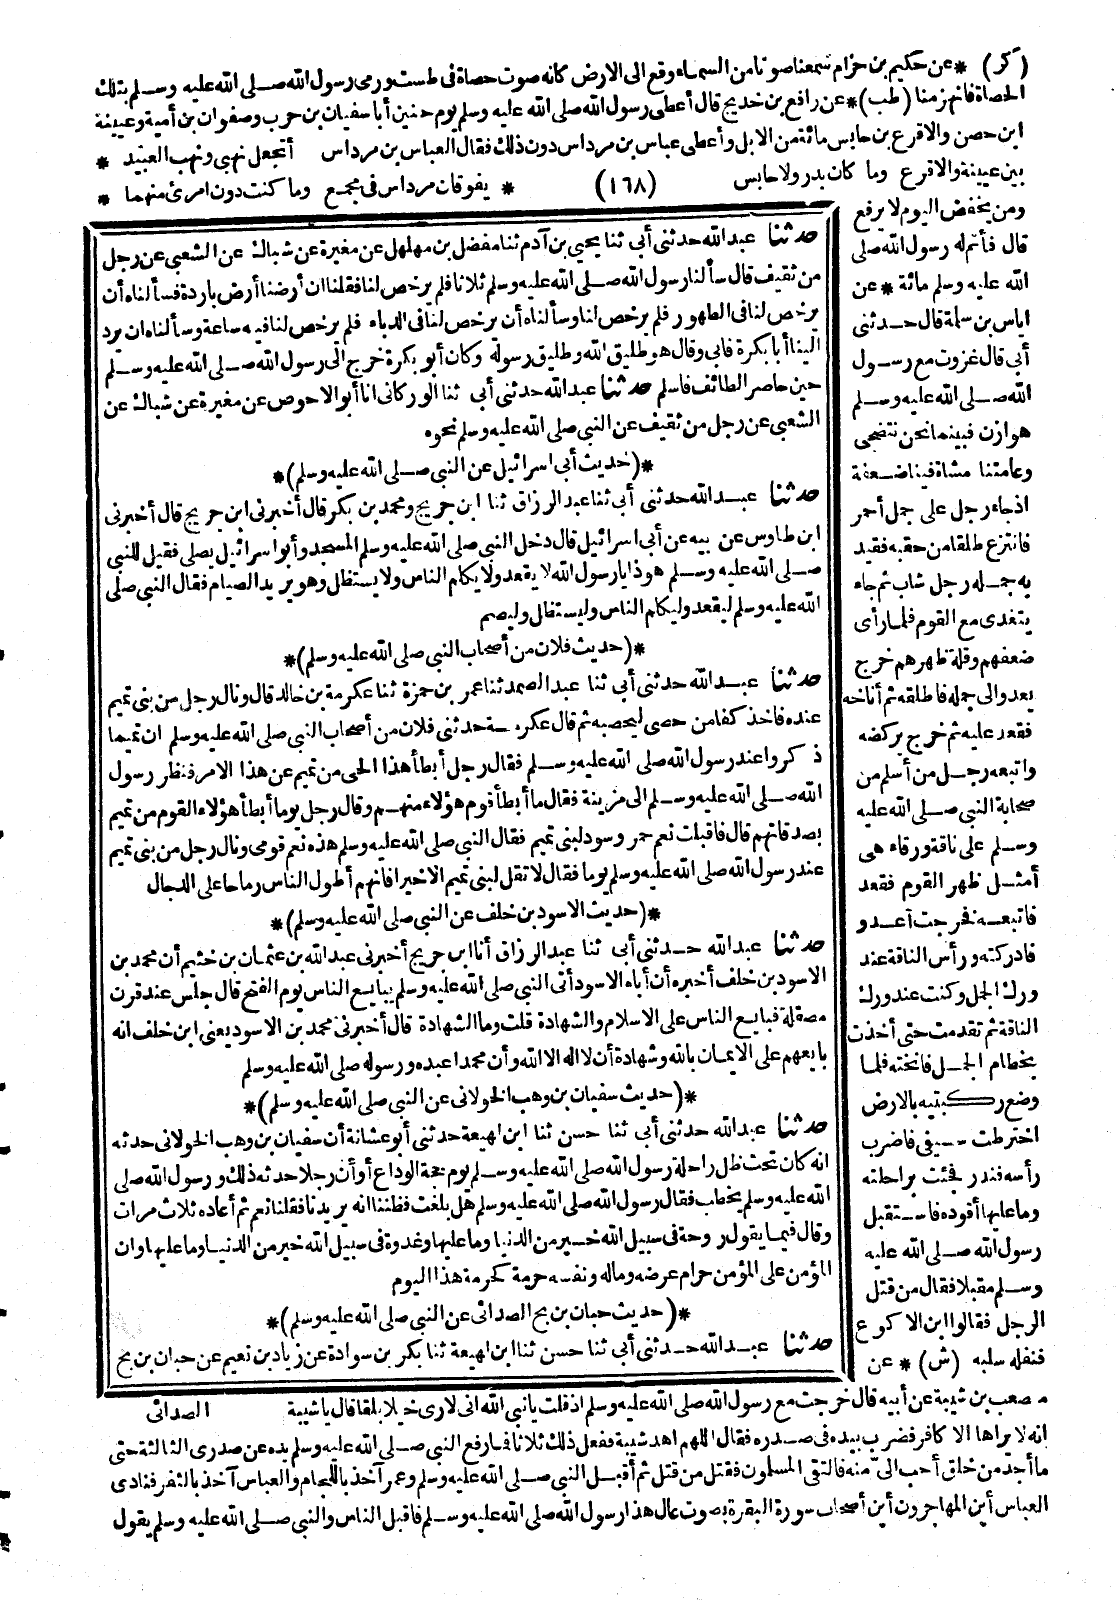 (كر) * عن حكيم بن حزام سمعنا صوتا من السماء وقع الى الارض كانه صوت حصاة فى طست ورمى رسول الله صلى الله عليه وسلم بتلك
الحصاة فانهزمنا (طب) * عن رافع بن خديج قال أعطى رسول الله صلى الله عليه وسلم يوم حنين أبا سفيان بن حرب وصفوان بن أمية وعيينة
ابن حصن والاقرع بن حابس مائة من الابل وأعطى عباس بن مرداس دون ذلك فقال العباس بن مرداس أتجعل نهبى ونهب العبيد *
بين عيينة والاقرع وما كان بدر ولا حابس (١٦٨) * يفوقان مرداس فى مجمع وما كنت دون امرئ منهما *
ومن يخفض اليوم لا يرفع
قال فأتم له رسول الله صلى
الله عليه وسلم مائة * عن
اياس بن سلمة قال حدثنى
أبى قال غزوت مع رسول
الله صلى الله عليه وسلم
هوازن فبينما نحن نتضحى
وعامتنا مشاة فينا ضعفة
اذ جاء رجل على جمل أحمر
فانتزع طلقا من حقبه فقيد
به جمله رجل شاب ثم جاء
يتغدى مع القوم فلما رأى
ضعفهم وقلة ظهرهم خرج
يعدو الى جمله فاطلقه ثم أناخه
فقعد عليه ثم خرج يركضه
واتبعه رجل من أسلم من
صحابة النبى صلى الله عليه
وسلم على ناقة ورقاء هى
أمثل ظهر القوم فقعد
فاتبعه فخرجت أعدو
فادركته ورأس الناقة عند
ورك الجمل وكنت عند ورك
الناقة ثم تقدمت حتى أخذت
بخطام الجمل فانخته فلما
وضع ركبتيه بالارض
اخترطت سيفى فاضرب
رأسه فندر فجئت براحلته
وما عليها أقوده فاستقبل
رسول الله صلى الله عليه
وسلم مقبلا فقال من قتل
الرجل فقالوا ابن الاكوع
فنفله سلبه (ش) * عن
حدثنا عبد الله حدثنى أبى ثنا يحيى بن آدم ثنا مفضل بن مهلهل عن مغيرة عن شباك عن الشعبى عن رجل
من ثقيف قال سألنا رسول الله صلى الله عليه وسلم ثلاثا فلم يرخص لنا فقلنا ان أرضنا أرض باردة فسألناه أن
يرخص لنا فى الطهور فلم يرخص لنا وسألناه أن يرخص لنا فى الدباء فلم يرخص لنا فيه ساعة وسألناه ان يرد
الينا أبا بكرة فابى وقال هو طليق الله وطليق رسوله وكان أبو بكرة خرج الى رسول الله صلى الله عليه وسلم
حين حاصر الطائف فاسلم حدثنا عبد الله حدثنى أبى ثنا الوركانى انا أبو الاحوص عن مغيرة عن شباك عن
الشعبى عن رجل من ثقيف عن النبى صلى الله عليه وسلم نحوه
*(حديث أبى اسرائيل عن النبى صلى الله عليه وسلم)*
حدثنا عبد الله حدثنى أبى ثنا عبد الرزاق ثنا ابن جريج ومحمد بن بكر قال أخبرنى ابن جريج قال أخبرنى
ابن طاوس عن بيه عن أبى اسرائيل قال دخل النبى صلى الله عليه وسلم المسجد وأبو اسرائيل يصلى فقيل للنبى
صلى الله عليه وسلم هوذا يا رسول الله لا يقعد ولا يكلم الناس ولا يستظل وهو يريد الصيام فقال النبى صلى
الله عليه وسلم ليقعد وليكلم الناس وليستظل وليصم
*(حديث فلان من أصحاب النبى صلى الله عليه وسلم)*
حدثنا عبد الله حدثنى أبى ثنا عبد الصمد ثنا عمر بن حمزة ثنا عكرمة بن خالد قال ونال رجل من بنى تميم
عنده فاخذ كفا من حصى ليحصبه ثم قال عكرمة حدثنى فلان من أصحاب النبى صلى الله عليه وسلم ان تميما
ذكروا عند رسول الله صلى الله عليه وسلم فقال رجل أبطأ هذا الحى من تميم عن هذا الامر فنظر رسول
الله صلى الله عليه وسلم الى مزينة فقال ما أبطأ قوم هؤلاء منهم وقال رجل يوما أبطأ هؤلاء القوم من تميم
بصدقاتهم قال فاقبلت نعم حمر وسود لبنى تميم فقال النبى صلى الله عليه وسلم هذه نعم قومى ونال رجل من بنى تميم
عند رسول الله صلى الله عليه وسلم يوما فقال لا تقل لبنى تميم الا خيرا فانهم أطول الناس رماحا على الدجال
*(حديث الاسود بن خلف عن النبى صلى الله عليه وسلم)*
حدثنا عبد الله حدثنى أبى ثنا عبد الرزاق أنا ابن جريج أخبرنى عبد الله بن عثمان بن خثيم أن محمد بن
الاسود بن خلف أخبره أن أباه الاسود أتى النبى صلى الله عليه وسلم يبايع الناس يوم الفتح قال جلس عند قرن
مصقلة فبايع الناس على الاسلام والشهادة قلت وما الشهادة قال أخبرنى محمد بن الاسود يعنى ابن خلف انه
بايعهم على الايمان بالله وشهادة أن لا اله الا الله وأن محمدا عبده ورسوله صلى الله عليه وسلم
*(حديث سفيان بن وهب الخولانى عن النبى صلى الله عليه وسلم)*
حدثنا عبد الله حدثنى أبى ثنا حسن ثنا ابن لهيعة حدثنى أبو عشانة أن سفيان بن وهب الخولانى حدثه
انه كان تحت ظل راحلة رسول الله صلى الله عليه وسلم يوم حجة الوداع أو أن رجلا حدثه ذلك ورسول الله صلى
الله عليه وسلم يخطب فقال رسول الله صلى الله عليه وسلم هل بلغت فظننا انه يريدنا فقلنا نعم ثم أعاده ثلاث مرات
وقال فيما يقول روحة فى سبيل الله خير من الدنيا وما عليها وغدوة فى سبيل الله خير من الدنيا وما عليها وان
المؤمن على المؤمن حرام عرضه وماله ونفسه حرمة كحرمة هذا اليوم
*(حديث حبان بن بح الصدائى عن النبى صلى الله عليه وسلم)*
حدثنا عبد الله حدثنى أبى ثنا حسن ثنا ابن لهيعة ثنا بكر بن سوادة عن زياد بن نعيم عن حبان بن بح
الصدائى
مصعب بن شيبة عن أبيه قال خرجت مع رسول الله صلى الله عليه وسلم اذ قلت يا نبى الله انى لارى خيلا بلقا قال يا شيبة
انه لا يراها الا كافر فضرب بيده فى صدره فقال اللهم اهد شيبة ففعل ذلك ثلاثا فما رفع النبى صلى الله عليه وسلم يده عن صدرى الثالثة حتى
ما أجد من خلق أحب الى منه فالتقى المسلمون فقتل من قتل ثم أقبل النبى صلى الله عليه وسلم وعمر آخذ باللجام والعباس آخذ بالثفر فنادى
العباس أين المهاجرون أين أصحاب سورة البقرة بصوت عال هذا رسول الله صلى الله عليه وسلم فاقبل الناس والنبى صلى الله عليه وسلم يقول